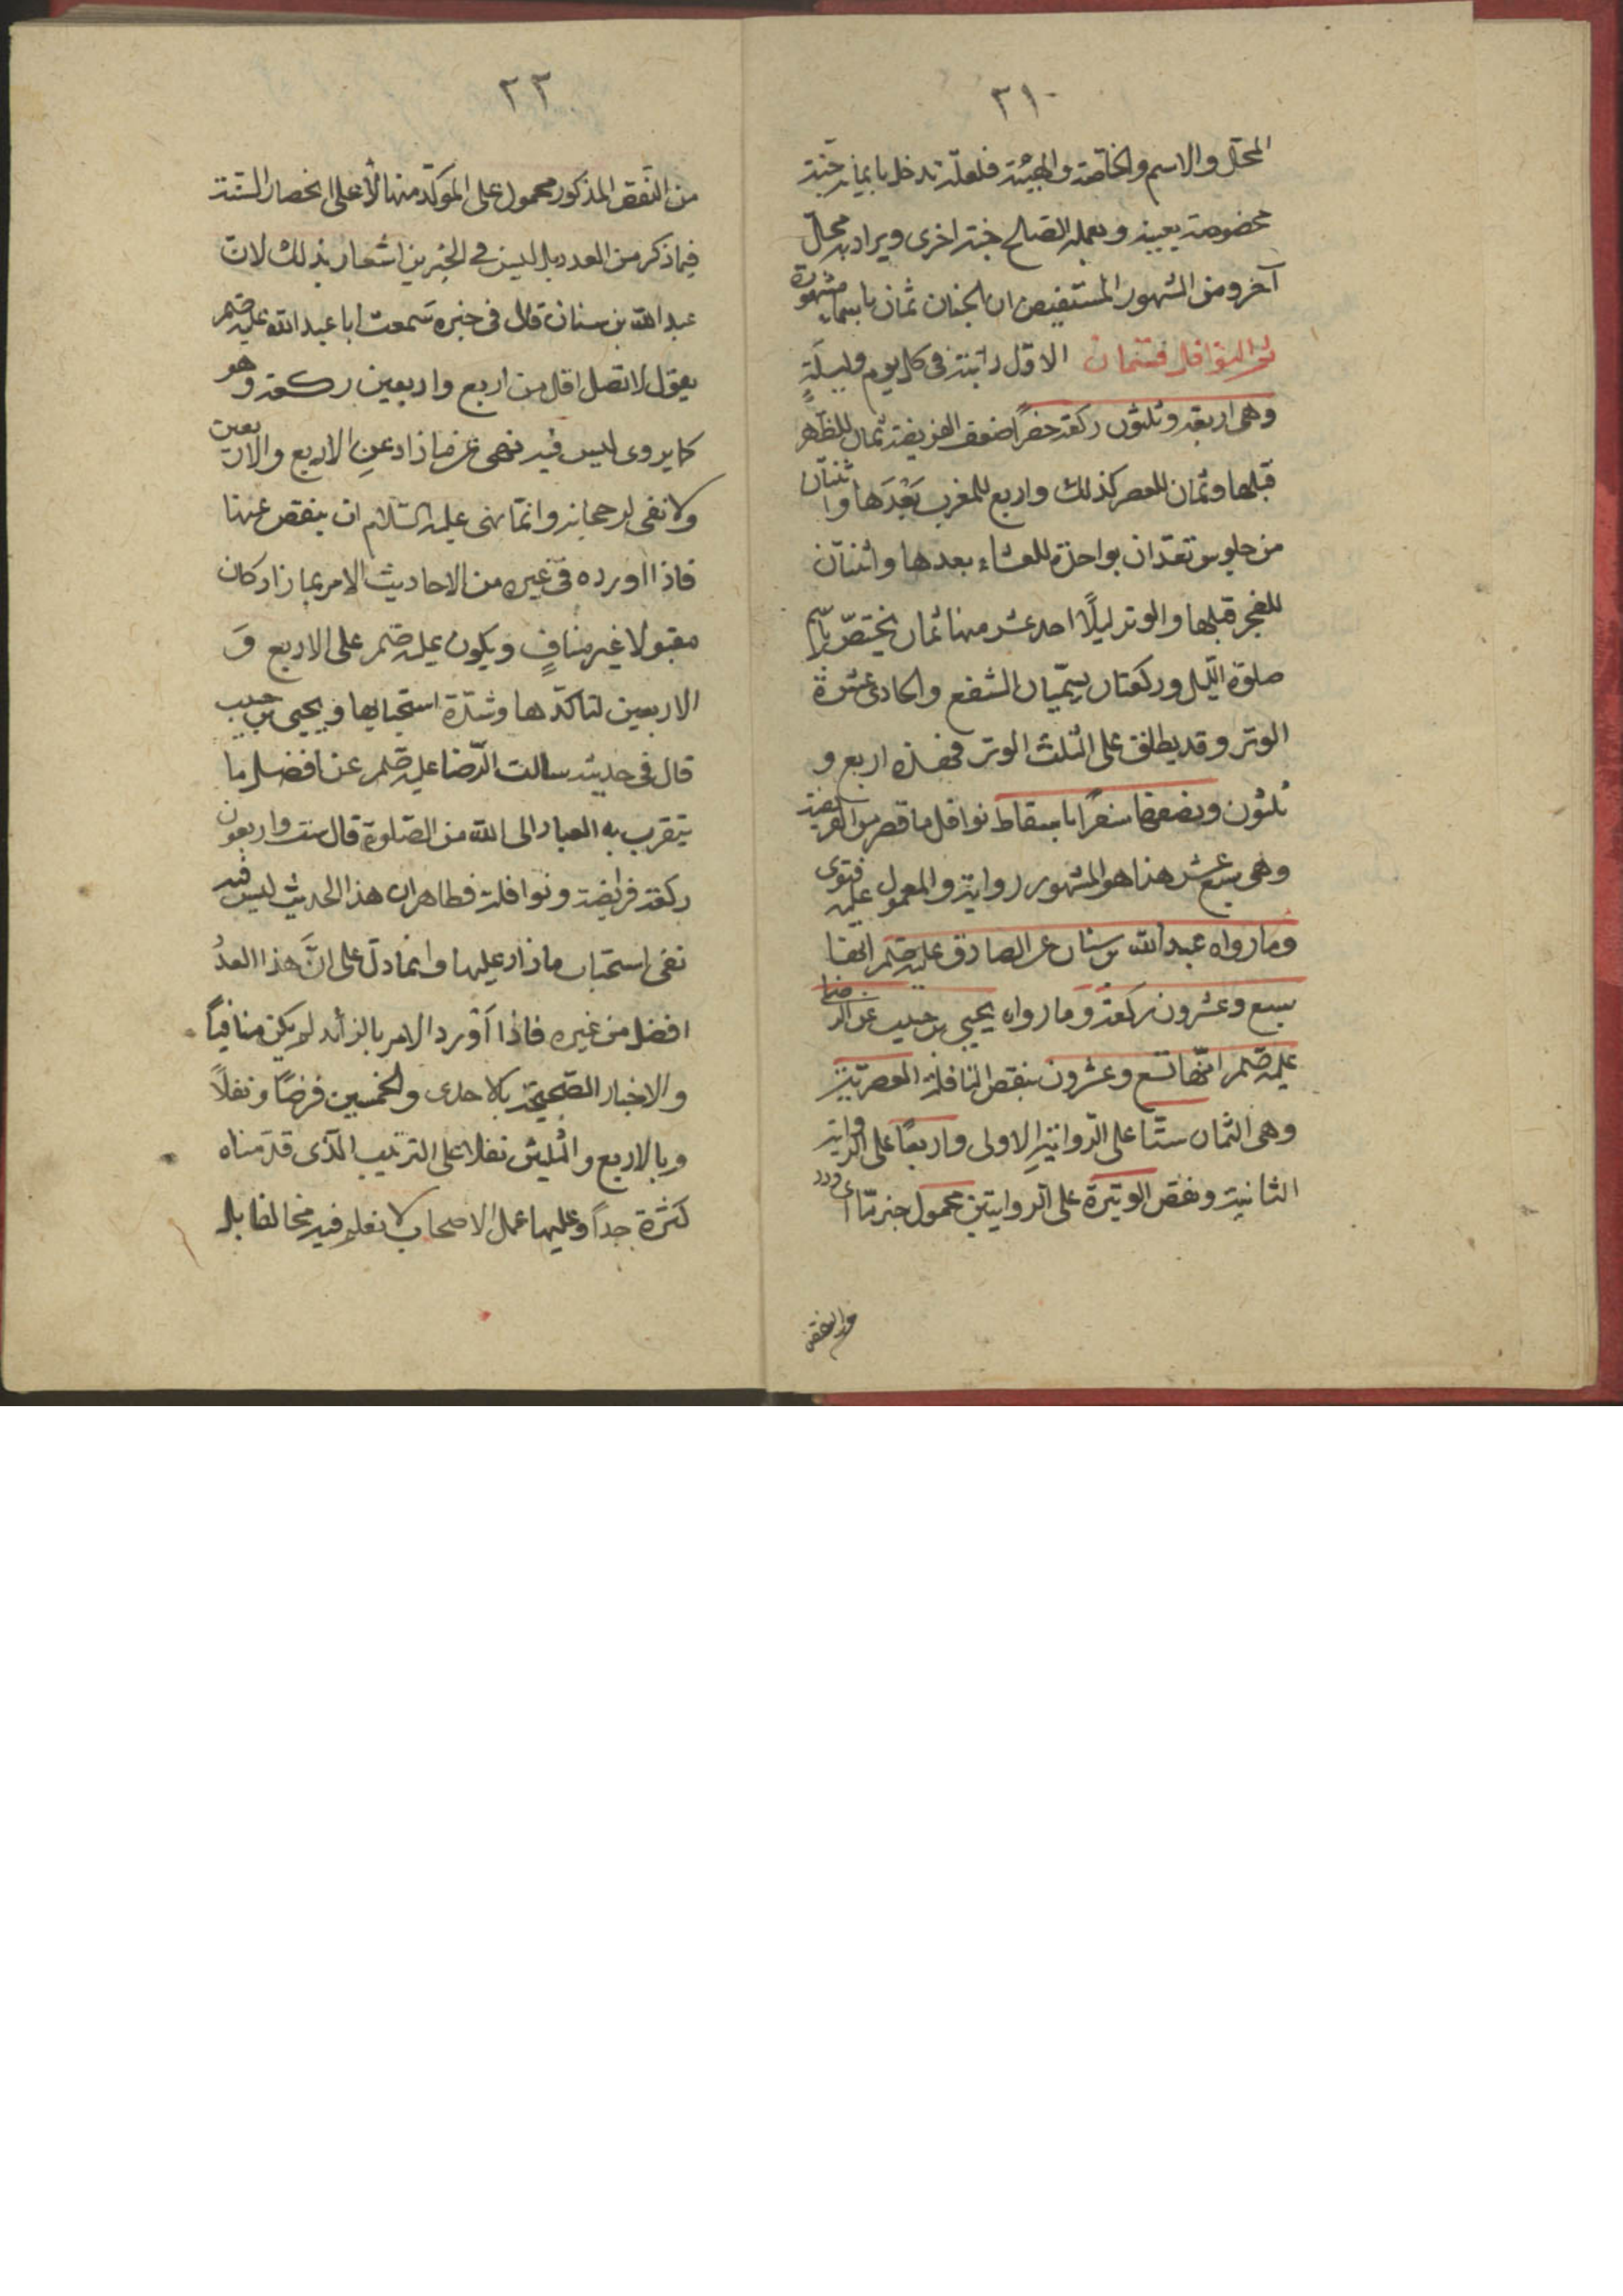 ٢١
المحل والاسم والخاصة والهيئة فلعله تدخل بايمانه جنة
مخصوصة بعينه وبعمله الصالح جنة اخرى ويراد به محال
آخر ومن المشهور المستفيض ان الجنان ثمان باسماء مشهورة
النوافل فقسمان الاول راتبة في كل يوم وليلةٍ
وهى اربعة وثلثون ركعة حضرًا ضعف الفريضة ثمان للظهر
قبلها وثمان للعصر كذلك واربع للمغرب بَعْدَها واثنتان
من جلوس تعدّان بواحدة للعشاء بعدها واثنتان
للفجر قبلها والوتر ليلًا احد عشر منها ثمان يختصّ باسم
صلوة الليل وركعتان يسمّيان الشفع والحادى عشرة
الوتر وقد يطلق على الثلث الوتر فهذه اربع و
ثلثون ونصفها سفرًا باسقاط نوافل ما قصر من الفريضة
وهى سبع عشر هذا هو المشهور رواية والمعمول عليه فتوى
وما رواه عبد الله بن سنان عن الصادق عليه صلم انها
سبع وعشرون ركعة وما رواه يحيى بن حبيب عن الرضا
عليه صلم انها تسع وعشرون بنقص النافلة العصرية
وهى الثمان ستّا على الرواية الاولى واربعًا على الرواية
الثانية ونقص الوتيرة على الروايتين محمول خبر
والنقص
٢٢
من النَّقص المذكور محمول على الموكّد منها لا على انحصار السنّة
فيما ذكر من العدد بل ليس في الخبرين اشعار بذلك لانّ
عبد الله بن سنان قال في خبره سمعت ابا عبد الله عليه صلم
يقول لا تصل اقل من اربع واربعين ركعة وهو
كما يروى ليس فيه نهى عن ما زاد عن الاربع والاربعين
ولا نفى لرجحانه وانّما نهى عليه السّلام ان ينقص عنها
فاذا اورده في غيره من الاحاديث الامر بما زاد كان
مقبولا غير منافٍ ويكون عمله صلم على الاربع وَ
الاربعين لتاكّدها وشدّة استحبابها ويحيى بن حبيب
قال في حديثه سالت الرّضا عليه صلم عن افضل ما
يتقرب به العباد الى الله من الصّلوة قال ست واربعون
ركعة فرايضه ونوافله فظاهر ان هذا الحديث ليس فيه
نفى استحباب ما زاد عليها وانما دلّ على انَّ هذا العددُ
افضل من غيره فاذا اَوْرد الامر بالزائد لم يكن منافياً
والاخبار الصّحيحة بالاحدى والخمسين فرضًا ونفلاً
وبالاربع والثلثين نفلا على الترتيب الّذى قدّمناه
كثرة جداً وعليها عمل الاصحاب لا نعلم فيه مخالفا بل